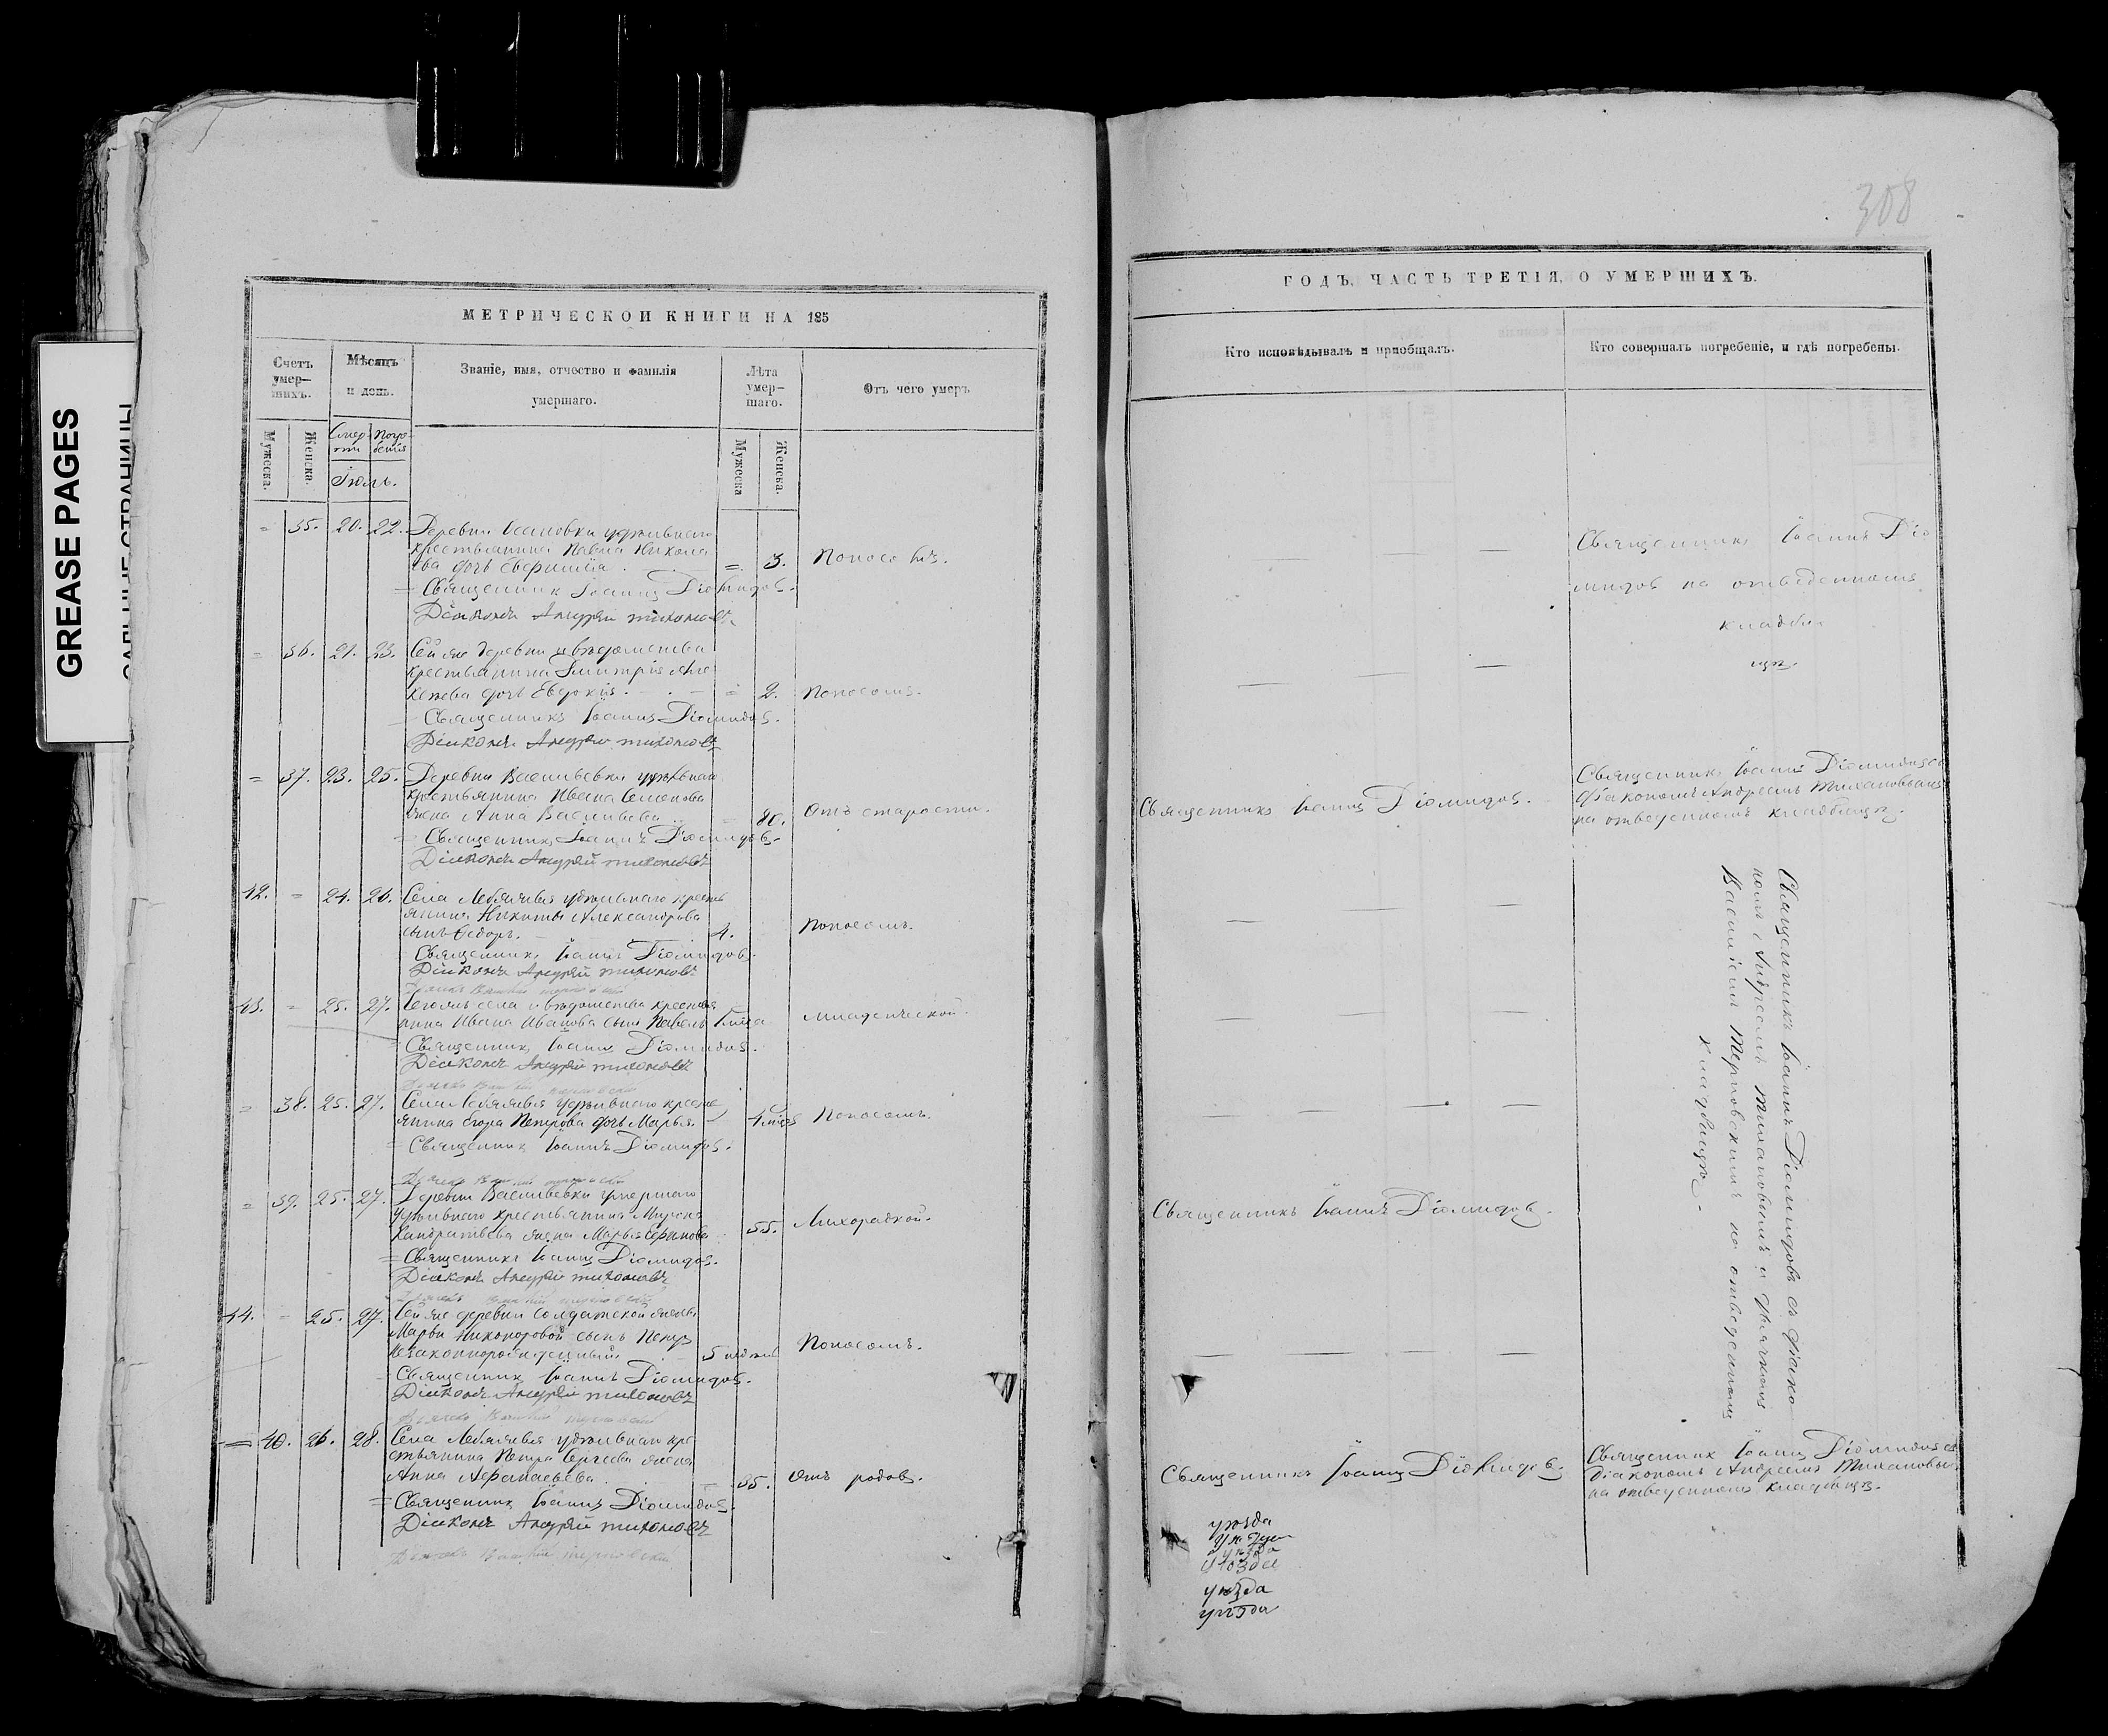 GREASE PAGES
308
МЕТРИЧЕСКОИ КНИГИ НА 185
Счетъ умер-шихъ.
Мѣсяцъ и день.
Званіе, имя, отчество и фамилія умершаго.
Лѣта умер-шаго.
Отъ чего умеръ
Мужеска.
Женска.
Смерти
Погребенія
Іюль.
Мужеска
Женска.
35. 20. 22. Деревни Осановки удѣльнаго
крестьянина Павла Никола
ева дочь
3. Поносомъ.
Священникъ Іоаннъ Діомидовъ.
Діаконъ Андрей Тихоновъ
36. 21. 23. Сей же деревни и вѣдомства
крестьянина Димитрія Але
ксѣева дочь Евдокія.
2. Поносомъ.
Священникъ Іоаннъ Діомидовъ.
Діаконъ Андрей Тихоновъ
37. 23. 25. Деревни Васильевки удѣльнаго
крестьянина Ивана Семенова
жена Анна Васильева
80. Отъ старости.
Священникъ Іоаннъ Діомидовъ.
Діаконъ Андрей Тихоновъ
42. 24. 26. Села Лебяжья удѣльнаго кресть
янина Никиты Александрова
сынъ Ѳедоръ.
Поносомъ.
Священникъ Іоаннъ Діомидовъ.
Діаконъ Андрей Тихоновъ
43. 25. 27. Тогожъ села и вѣдомства кресть
янина Ивана Иванова сынъ Павелъ
младенческой.
Священникъ Іоаннъ Діомидовъ.
Діаконъ Андрей Тихоновъ
38. 25. 27. Села Лебяжья удѣльнаго кресть
янина Егора Петрова дочь Марья.
Поносомъ.
Священникъ Іоаннъ Діомидовъ.
39. 25. 27. Деревни Васильевки умершаго
удѣльнаго крестьянина Мирона
Кондратьева жена Марья
55. Лихорадкой.
Священникъ Іоаннъ Діомидовъ.
Діаконъ Андрей Тихоновъ
44. 25. 27. Сей же деревни солдатской жены
Марьи Никоноровой сынъ Петръ
незаконнорожденный
5 недель
Поносомъ.
Священникъ Іоаннъ Діомидовъ.
Діаконъ Андрей Тихоновъ
40. 26. 28. Села Лебяжья удѣльнаго кре
стьянина Петра Сергеева жена
Анна Афанасьева
35. Отъ родовъ.
Священникъ Іоаннъ Діомидовъ.
Діаконъ Андрей Тихоновъ
ГОДЪ, ЧАСТЬ ТРЕТІЯ, О УМЕРШИХЪ.
Кто исповѣдывалъ и пріобщалъ.
Кто совершалъ погребеніе, и гдѣ погребены.
Священникъ Іоаннъ Діо
мидовъ на отведенномъ
кладби
щѣ.
Священникъ Іоаннъ Діомидовъ.
Священникъ Іоаннъ Діомидовъ съ
діакономъ Андреемъ Тихоновымъ
на отведенномъ кладбищѣ.
Священникъ Іоаннъ Діомидовъ съ діако
номъ Андреемъ Тихоновымъ и дьячкомъ
Василіемъ Терновскимъ на отведенномъ
кладбищѣ.
Священникъ Іоаннъ Діомидовъ.
Священникъ Іоаннъ Діомидовъ.
Священникъ Іоаннъ Діомидовъ съ
діакономъ Андреемъ Тихоновымъ
на отведенномъ кладбищѣ.
уѣзда
уѣзда
уѣзда
уѣзда